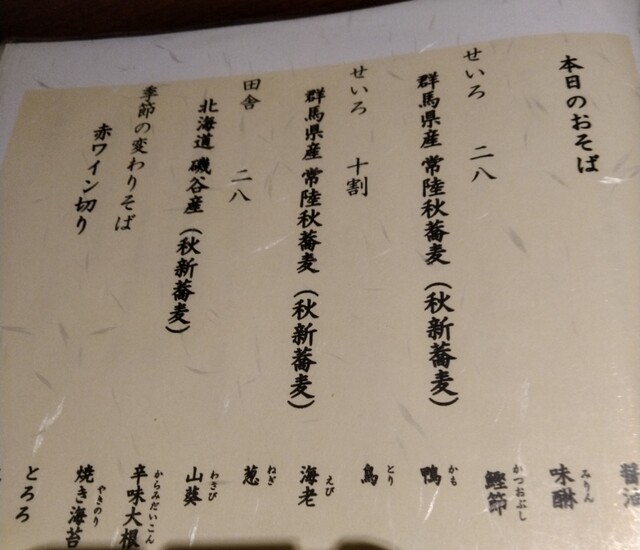 本日のおそば
せいろ 二八
群馬県産 常陸秋蕎麦（秋新蕎麦）
せいろ 十割
群馬県産 常陸秋蕎麦（秋新蕎麦）
田舎 二八
北海道 磯谷産（秋新蕎麦）
季節の変わりそば
赤ワイン切り
味醂 みりん
鰹節 かつおぶし
鴨 かも
鳥 とり
海老 えび
葱 ねぎ
山葵 わさび
辛味大根 からみだいこん
焼き海苔 やきのり
とろろ